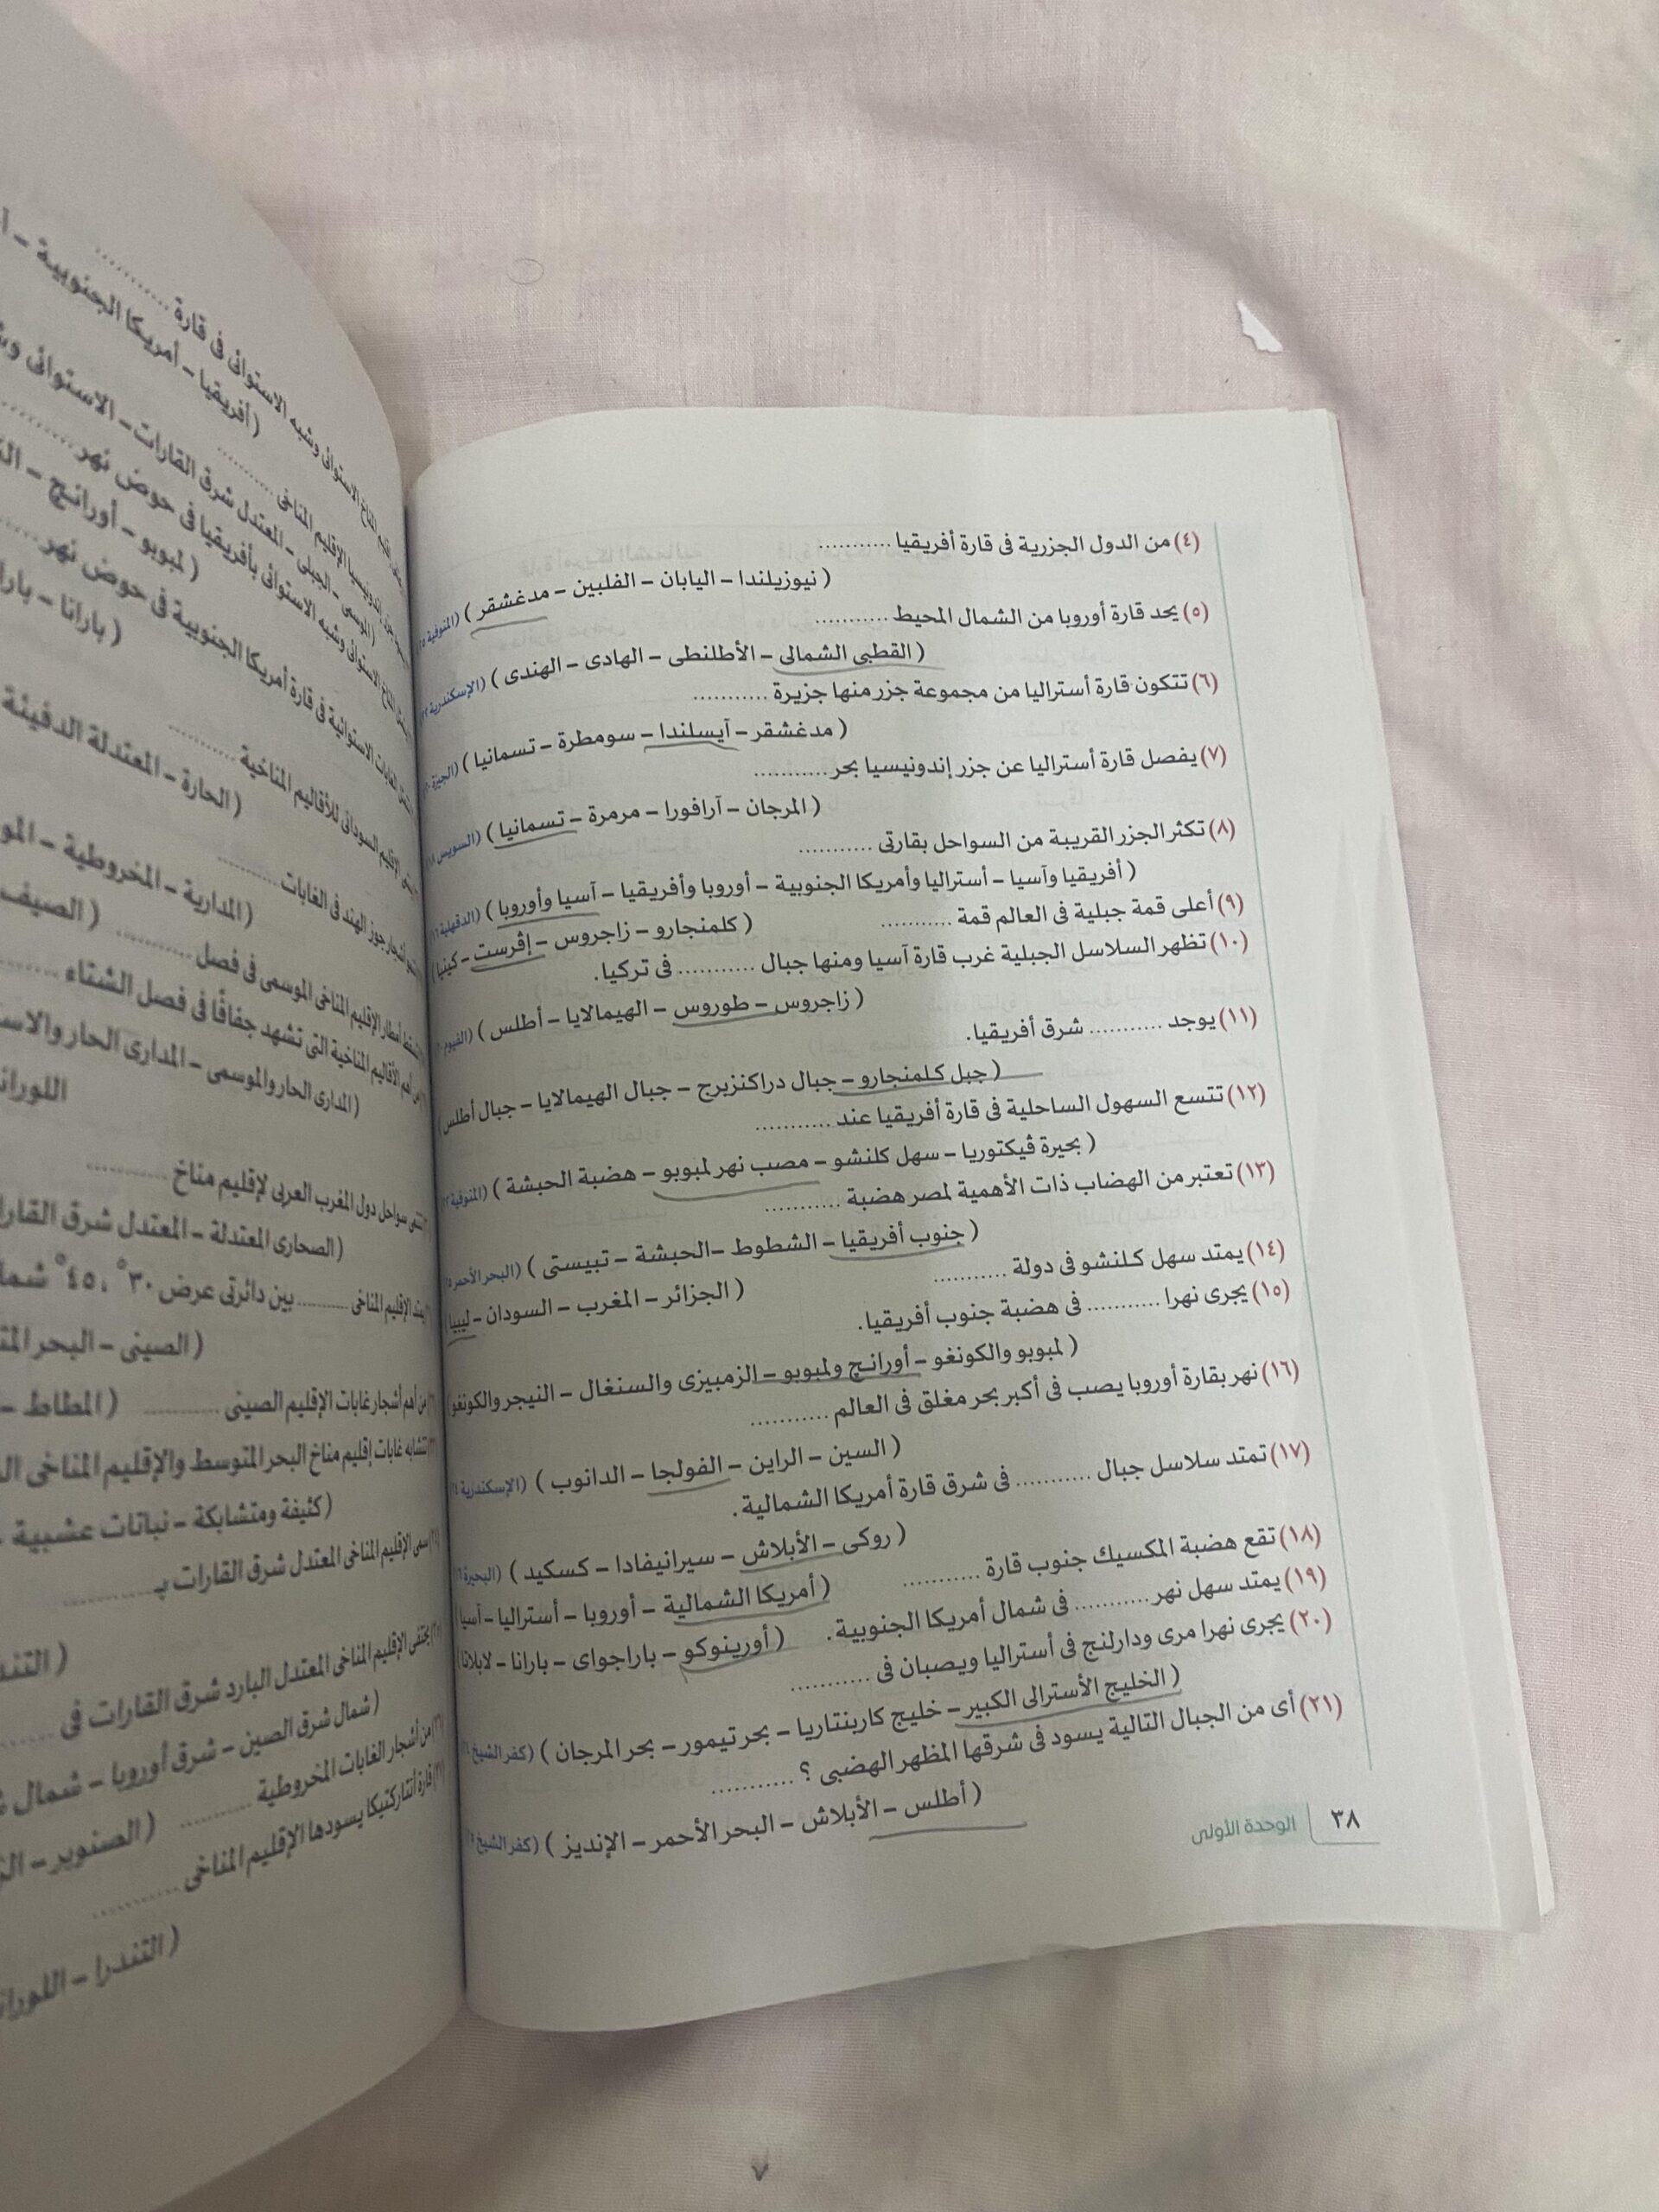 (٤) من الدول الجزرية فى قارة أفريقيا ...........
( نيوزيلندا – اليابان – الفلبين – مدغشقر ) (المنوفية
(٥) يحد قارة أوروبا من الشمال المحيط ...........
( القطبى الشمالى – الأطلنطى – الهادى – الهندى ) (الإسكندرية
(٦) تتكون قارة أستراليا من مجموعة جزر منها جزيرة ...........
( مدغشقر – آيسلندا – سومطرة – تسمانيا ) (الجيزة
(٧) يفصل قارة أستراليا عن جزر إندونيسيا بحر ...........
( المرجان – آرافورا – مرمرة – تسمانيا ) (السويس
(٨) تكثر الجزر القريبة من السواحل بقارتى ...........
( أفريقيا وآسيا – أستراليا وأمريكا الجنوبية – أوروبا وأفريقيا – آسيا وأوروبا ) (الدقهلية
(٩) أعلى قمة جبلية فى العالم قمة ........... ( كلمنجارو – زاجروس – إڤرست – كينيا )
(١٠) تظهر السلاسل الجبلية غرب قارة آسيا ومنها جبال ........... فى تركيا.
( زاجروس – طوروس – الهيمالايا – أطلس ) (الفيوم
(١١) يوجد ........... شرق أفريقيا.
( جبل كلمنجارو – جبال دراكنزبرج – جبال الهيمالايا – جبال أطلس )
(١٢) تتسع السهول الساحلية فى قارة أفريقيا عند ...........
( بحيرة ڤيكتوريا – سهل كلنشو – مصب نهر لمبوبو – هضبة الحبشة ) (المنوفية
(١٣) تعتبر من الهضاب ذات الأهمية لمصر هضبة ...........
( جنوب أفريقيا – الشطوط – الحبشة – تبيستى ) (البحر الأحمر
(١٤) يمتد سهل كلنشو فى دولة ........... ( الجزائر – المغرب – السودان – ليبيا )
(١٥) يجرى نهرا ........... فى هضبة جنوب أفريقيا.
( لمبوبو والكونغو – أورانج ولمبوبو – الزمبيزى والسنغال – النيجر والكونغو )
(١٦) نهر بقارة أوروبا يصب فى أكبر بحر مغلق فى العالم ...........
( السين – الراين – الفولجا – الدانوب ) (الإسكندرية
(١٧) تمتد سلاسل جبال ........... فى شرق قارة أمريكا الشمالية.
( روكى – الأبلاش – سيرانيفادا – كسكيد ) (البحيرة
(١٨) تقع هضبة المكسيك جنوب قارة ........... ( أمريكا الشمالية – أوروبا – أستراليا – آسيا )
(١٩) يمتد سهل نهر ........... فى شمال أمريكا الجنوبية. ( أورينوكو – باراجواى – بارانا – لابلاتا )
(٢٠) يجرى نهرا مرى ودارلنج فى أستراليا ويصبان فى ...........
( الخليج الأسترالى الكبير – خليج كاربنتاريا – بحر تيمور – بحر المرجان ) (كفر الشيخ
(٢١) أى من الجبال التالية يسود فى شرقها المظهر الهضبى ؟ ...........
( أطلس – الأبلاش – البحر الأحمر – الإنديز ) (كفر الشيخ
٣٨ الوحدة الأولى
الاستوائى وشبه الاستوائى فى قارة ...........
( أفريقيا – أمريكا الجنوبية –
إندونيسيا الإقليم المناخى ...........
( الموسمى – الجبلى – المعتدل شرق القارات – الاستوائى
الاستوائى وشبه الاستوائى بأفريقيا فى حوض نهر ...........
( لمبوبو – أورانج –
الغابات الاستوائية فى قارة أمريكا الجنوبية فى حوض نهر ...........
( بارانا –
الإقليم السودانى للأقاليم المناخية ...........
( الحارة – المعتدلة الدفيئة
أشجار جوز الهند فى الغابات ...........
( المدارية – المخروطية –
أمطار الإقليم المناخى الموسمى فى فصل ........... ( الصيف
من أهم الأقاليم المناخية التى تشهد جفافًا فى فصل الشتاء ...........
( المدارى الحار والموسمى – المدارى الحار
سواحل دول المغرب العربى لإقليم مناخ ...........
( الصحارى المعتدلة – المعتدل شرق
يمتد الإقليم المناخى ........... بين دائرتى عرض ٣٠° ، ٤٥°
( الصينى – البحر
من أهم أشجار غابات الإقليم الصينى ........... ( المطاط –
تتشابه غابات إقليم مناخ البحر المتوسط والإقليم المناخى
( كثيفة ومتشابكة – نباتات عشبية
سمى الإقليم المناخى المعتدل شرق القارات بـ ...........
يختفى الإقليم المناخى المعتدل البارد شرق القارات فى ...........
( شمال شرق الصين – شرق أوروبا – شمال
من أشجار الغابات المخروطية ........... ( الصنوبر –
قارة أنتاركتيكا يسودها الإقليم المناخى ...........
( التندرا –